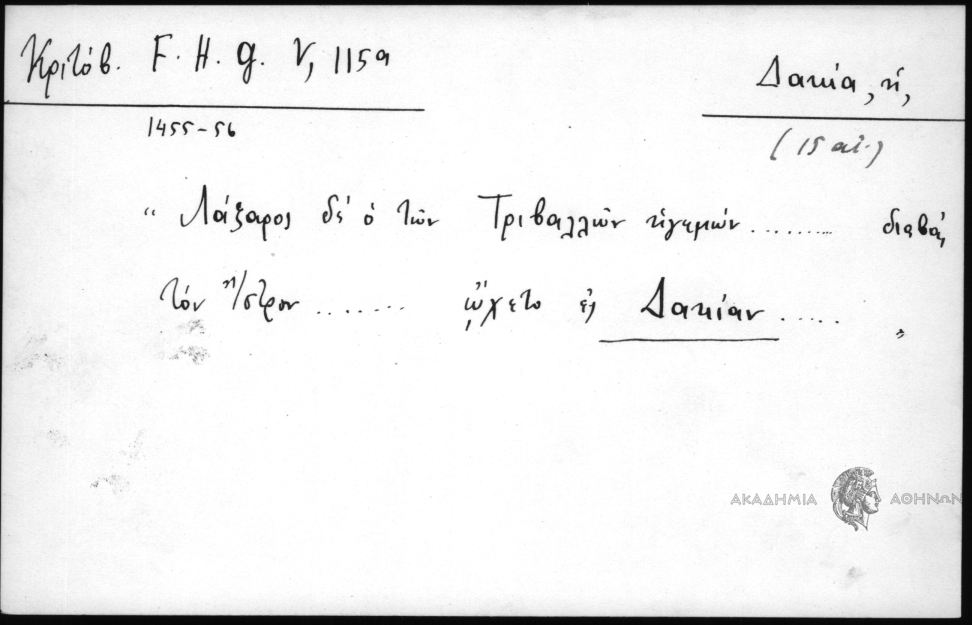 Κριτόβ. F. H. g. V, 115a
Δακία, ἡ,
1455-56
(15 αἰ.)
“ Λάζαρος δέ ὁ τῶν Τριβαλλῶν ἡγεμών ......... διαβάς
τόν Ἴστρον ...... ᾤχετο ἐς Δακίαν ..... „
ΑΚΑΔΗΜΙΑ ΑΘΗΝΩΝ